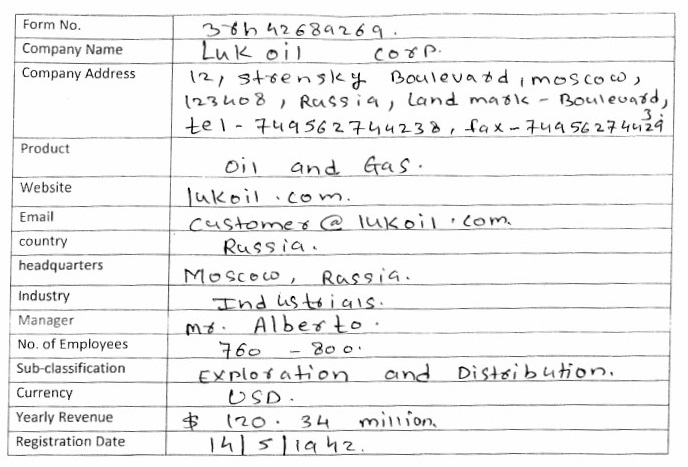 Form No.
Company Name Lukoil corp.
Company Address 12, strensky Boulevard, moscow,
123408, Russia, Land mark - Boulevard,
tel - 749562744238, fax -
Product Oil and Gas.
Website lukoil.com.
Email customer@lukoil.com
country Russia.
headquarters Moscow, Russia.
Industry Industrials.
Manager Mr. Alberto.
No. of Employees 760 - 800.
Sub-classification Exploration and Distribution.
Currency USD.
Yearly Revenue $ 120.34 million.
Registration Date 14/5/1942.